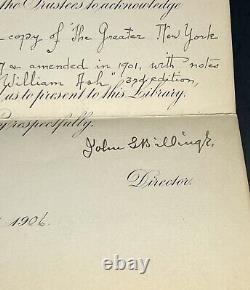 the Trustees to acknowledge
copy of "The Greater New York
as amended in 1901, with notes
William Ash" 3rd edition,
us to present to this Library.
respectfully,
John S Billings
Director.
1906.